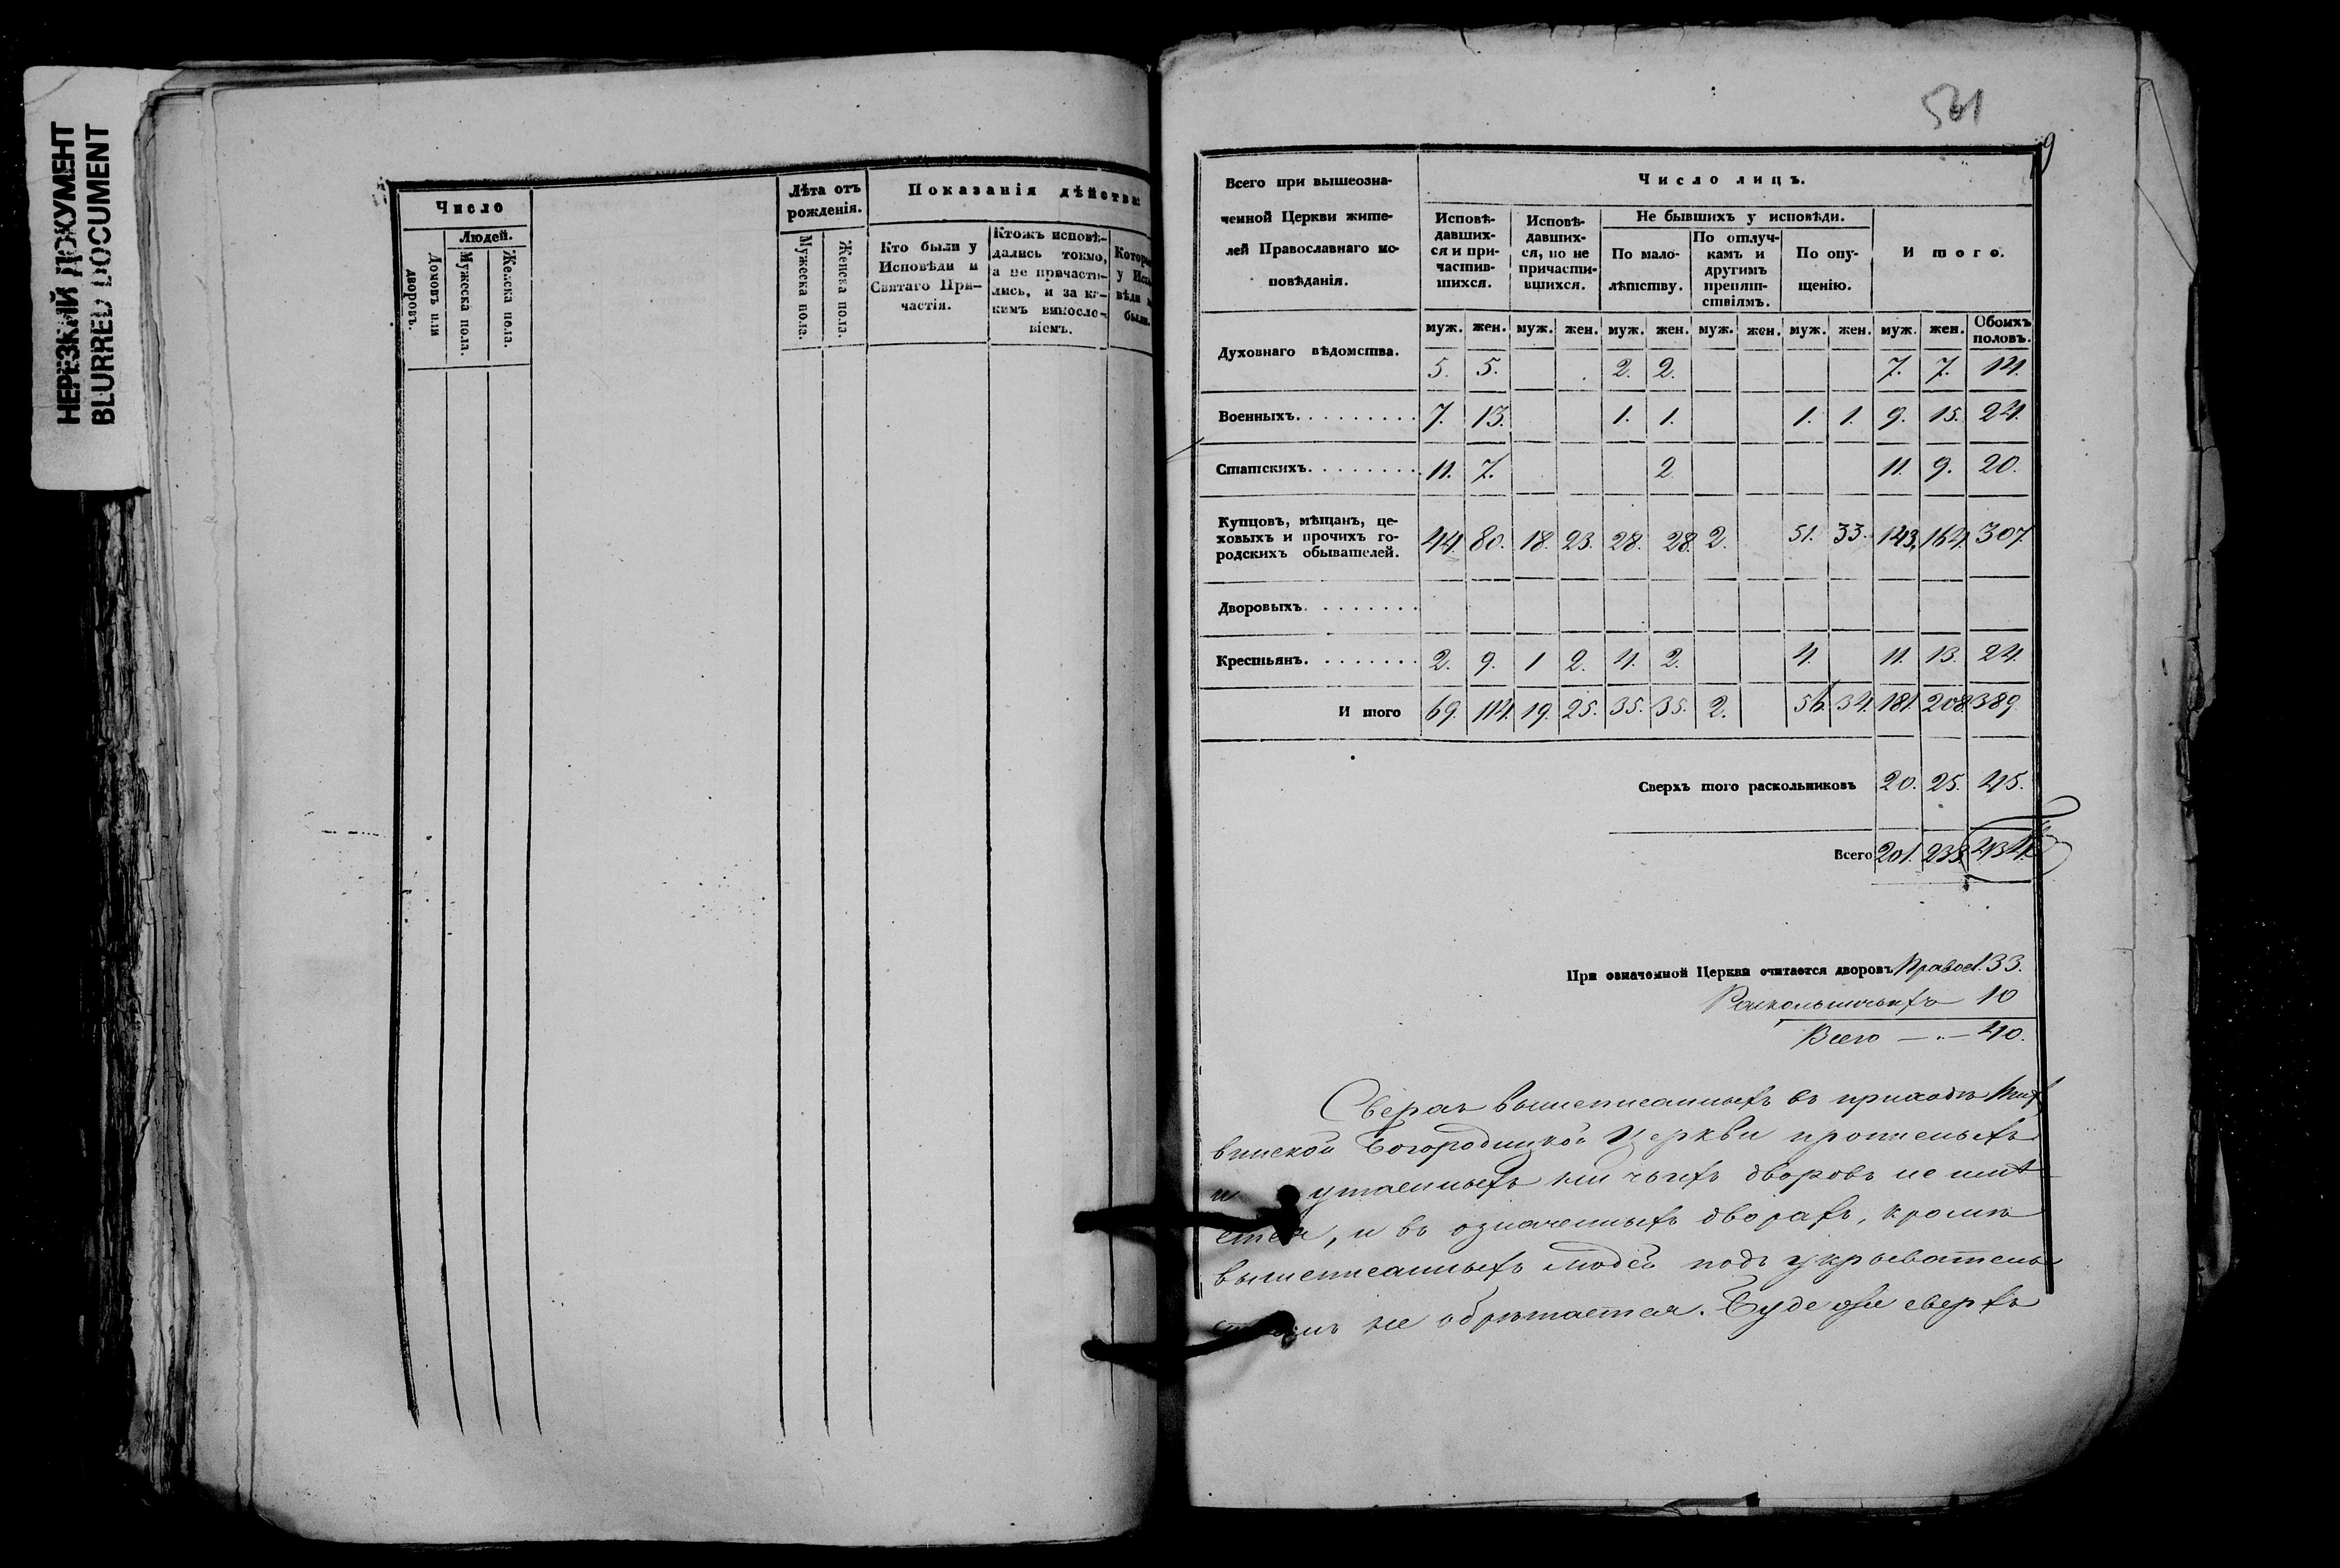 НЕРЕЗКИЙ ДОКУМЕНТ
BLURRED DOCUMENT
Число
Людей.
Домовъ или дворовъ.
Мужеска пола.
Женска пола.
Лѣта отъ рожденія.
Мужеска пола.
Женска пола.
Показанія дѣйства:
Кто были у
Исповѣди и
Святаго При-
частія.
Ктожъ исповѣ-
дались токмо,
а не причасти-
лись, и за ка-
кимъ винословіемъ.
у
были.
501
9
Всего при вышеозна-
ченной Церкви жите-
лей Православнаго ис-
повѣданія.
Число лицъ.
Исповѣ-
давших-
ся и при-
частив-
шихся.
Исповѣ-
давших-
ся, но не
причасти-
вшихся.
Не бывшихъ у исповѣди.
По мало-
лѣтству.
По отлуч-
камъ и
другимъ
препят-
ствіямъ.
По опу-
щенію.
Итого.
муж. жен. муж. жен. муж. жен. муж. жен. муж. жен. муж. жен. Обоихъ половъ.
Духовнаго вѣдомства. 5. 5. 2. 2. 7. 7. 14.
Военныхъ. 7. 13. 1. 1. 1. 1. 9. 15. 24.
Статскихъ. 11. 7. 2 11. 9. 20.
Купцовъ, мѣщанъ, це-
ховыхъ и прочихъ го-
родскихъ обывателей. 44. 80. 18. 23. 28. 28. 2. 51. 33. 143. 164. 307
Дворовыхъ.
Крестьянъ. 2. 9. 1 2. 4. 2. 4. 11. 13. 24.
Итого 69. 114. 19. 25. 35. 35. 2. 56. 34. 181. 208 389.
Сверхъ того раскольниковъ 20. 25. 45.
Всего 201. 233.
При означенной Церкви считается дворовъ Правосл. 33.
Раскольничьихъ 10
Всего — . — 40.
Сверхъ вышеписанныхъ въ приходѣ
Богородицкой Церкви
и утаенныхъ ни чьихъ дворовъ не имѣ-
ется, и въ означенныхъ дворахъ, кромѣ
вышеписанныхъ людей подъ укрывательс
не обрѣтается. Буде же сверхъ